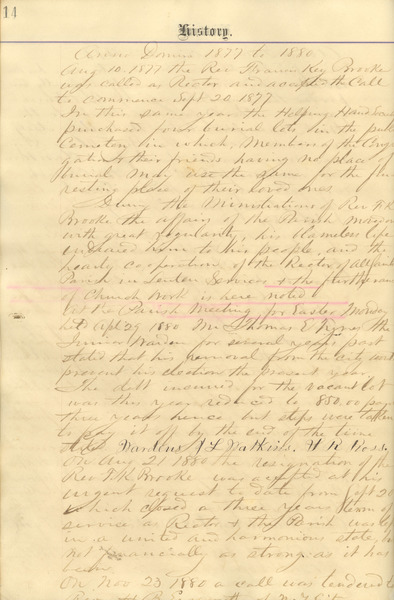 14
History.
Anno Domini 1877 to 1880
Aug 10. 1877 the Rev Francis Key Brooke
was called as Rector and accepted the Call
to commence Sept 20 1877
In this same year the Helping Hand
purchased four burial lots in the
Cemetery in which, Members of the
& their friends having no place of
burial may use the same for the
resting place of their loved ones
During the Ministrations of Rev F K
Brooke the affairs of the Parish
with great regularity, his blameless life
endeared him to his people, and the
hearty cooperation of the Rector of
Parish in Lenten Services & the
of Church Work is here noted
At the Parish Meeting for Easter Monday
1880 Mr Thomas E the
Junior Warden for several years past
stated that his removal from the city
prevent his election the present year
The debt incurred for the vacant lot
was this year reduced to 850.00
three years hence but steps were taken
to pay it off by the end of the time
Wardens J L Watkins. H R Ross.
On Aug 21 1880 the resignation of the
Rev F K Brooke was accepted at his
urgent request to date from Sept 20
which closed a three years term of
service as Rector & the Parish was left
in a united and harmonious state,
not financially as strong as it has
been
On Nov 23 1880 a call was tendered to